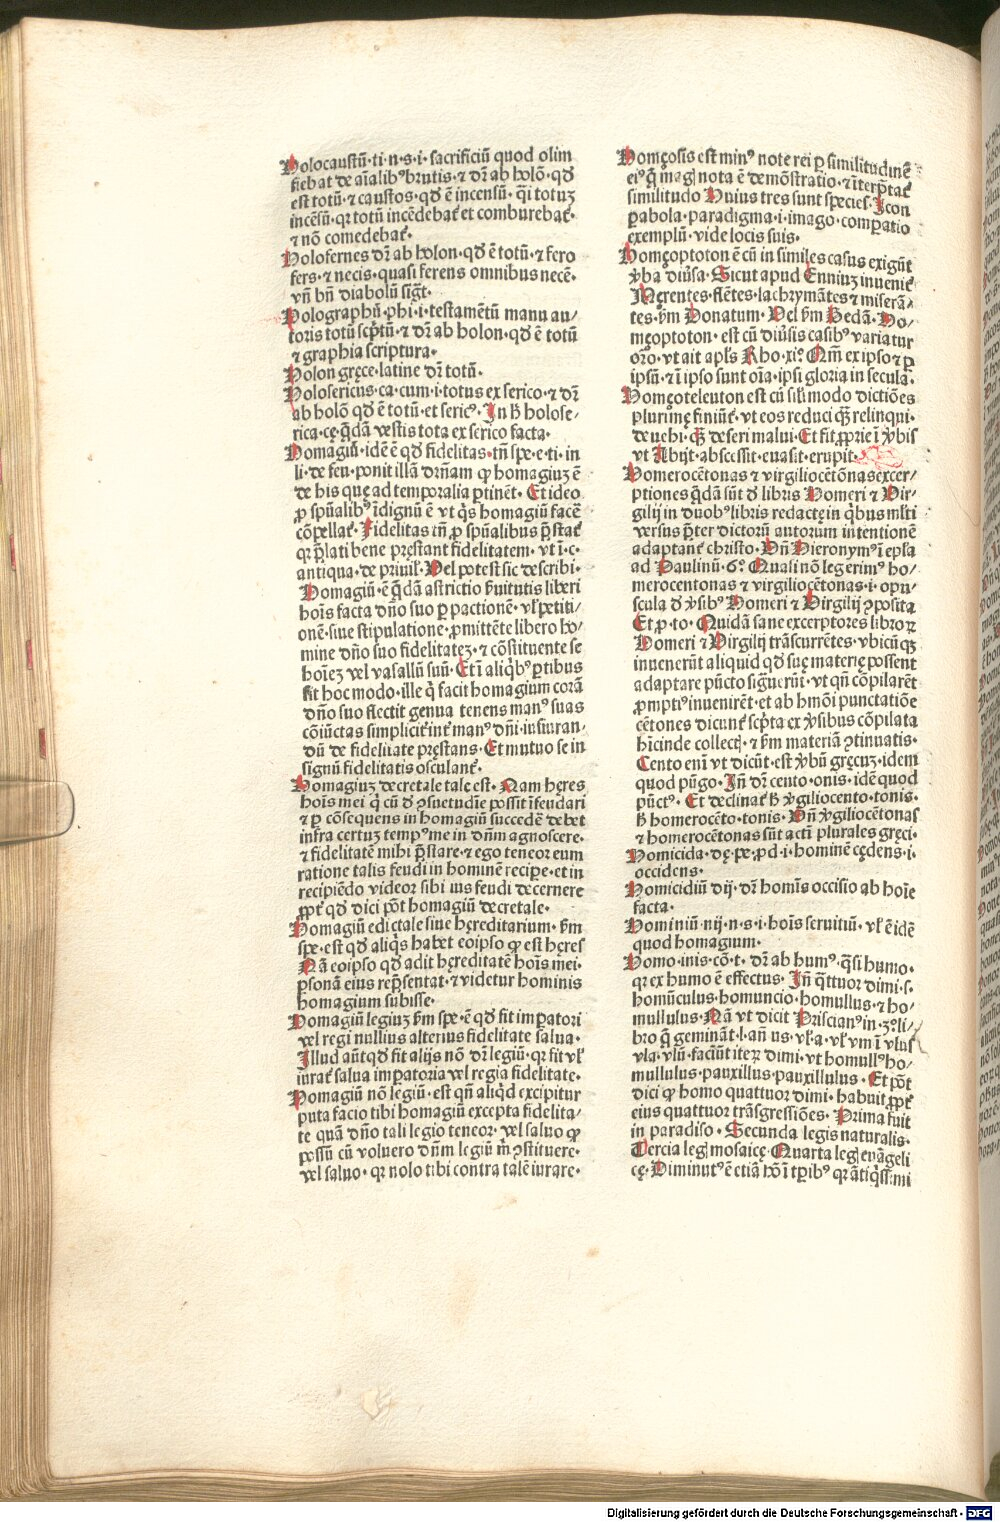 Holocaustū·ti·n·s·i·sacrificiū quod olim
fiebat de aīalibꝰ brutis·⁊ dr̄ ab holō·qđ
est totū·⁊ caustos·qđ ē incensū·q̄i totuꝫ
incēsū·qꝛ totū incēdebat̄ et comburebat̄·
⁊ nō comedebat̄·
Holofernes dr̄ ab holon·qđ ē totū·⁊ fero
fers·⁊ necis·quasi ferens omnibus necē·
vn̄ bn̄ diabolū sigt̄·
Holographū·phi·i·testamētū manu au/
toris totū scp̄tū·⁊ dr̄ ab holon·qđ ē totū
⁊ graphia scriptura·
Holon gręce·latine dr̄ totū·
Holosericus·ca·cum·i·totus ex serico·⁊ dr̄
ab holō qđ ē totū·et sericꝰ·In ħ holose/
rica·cę·q̄dā vestis tota ex serico facta·
Homagiū·idē ē qđ fidelitas·tn̄ spe·e·ti·in
li·de feu·ponit illā dr̄nam ꝙ homagiuꝫ ē
de his quę ad temporalia ꝑtinēt·Et ideo
ꝓ spūalibꝰ īdignū ē vt q̇s homagiū facē
cōpellat̄·Fidelitas tn̄ ꝓ spūalibus p̄stat̄
qꝛ p̄lati bene pręstant fidelitatem·vt ī·c·
antiqua·de priuil̄·Vel potest sic describi·
Homagiū·ē q̄dā astrictio ẜuitutis liberi
hoīs facta dn̄o suo ꝑ pactionē·vl̄ petiti/
onē·siue stipulatione·ꝓmittēte libero ho/
mine dn̄o suo fidelitateꝫ·⁊ cōstituente se
hoīeꝫ vel vasallū suū·Et ī aliq̇bꝰ ꝑtibus
fit hoc modo·ille q̇ facit homagium corā
dn̄o suo flectit genua tenens manꝰ suas
cōiūctas simplicit̄ int̄ manꝰ dn̄i·iusiuran/
dū de fidelitate pręstans·Et mutuo se in
signū fidelitatis osculant̄·
Homagiuꝫ decretale tale est·Nam hęres
hoīs mei q̇ cū đ ↄsuetudīe possit īfeudari
⁊ ꝑ cōsequens in homagiū succedē debet
infra certuꝫ tempꝰ me in dn̄m agnoscere·
⁊ fidelitatē mihi p̄stare·⁊ ego teneor eum
ratione talis feudi in hominē recipe·et in
recipiēdo videor sibi ius feudi decernere
ꝓpt̄ qđ dici pōt homagiū decretale·
Homagiū edictale siue hęreditarium·ẜm
spe·est qđ aliq̇s habet eoipso ꝙ est hęres
Nā eoipso qđ adit hęreditatē hoīs mei·
ꝑsonā eius rep̄sentat·⁊ videtur hominis
homagium subisse·
Homagiū legiuꝫ ẜm spe·ē qđ fit imꝑatori
vel regi nullius alterius fidelitate salua·
Illud aūt qđ fit alijs nō dr̄ legiū·qꝛ fit vl̄
iurat̄ salua imꝑatoria vel regia fidelitate·
Homagiū nō legiū·est qn̄ aliq̇d excipitur
puta facio tibi homagiū excepta fidelita/
te quā dn̄o tali legio teneor·vel saluo ꝙ
possū cū voluero dn̄m legiū m̄ ↄstituere·
vel saluo·qꝛ nolo tibi contra talē iurare·
Homęosis est minꝰ note rei ꝑ similitudinē
eiꝰ q̄ magꝭ nota ē demōstratio·⁊ īterp̄tat̄
similitudo Huius tres sunt species·Icon
ꝑabola·paradigma·i·imago·comꝑatio
exemplū·vide locis suis·
Homęoptoton ē cū in similes casus exigūt̄
ꝟba diūsa·Sicut apud Enniuꝫ inuenit̄
Męrentes·flētes·lachrymātes ⁊ miserā/
tes·ẜm Donatum·Vel ẜm Bedā·Ho/
męoptoton·est cū diūsis casibꝰ variatur
oro·vt ait apl̄s Rho·xi°·Qm̄ ex ipso ⁊ ꝑ
ipsū·⁊ ī ipso sunt oīa·ipsi gloria in secula·
Homęoteleuton est cū sil̄i modo dictiōes
plurimę finiūt̄·vt eos reduci qƷ relinqui·
deuehi·qƷ deseri malui·Et fit ꝓprie ī ꝟbis
vt Abijt·abscessit·euasit·erupit·
Homerocētonas ⁊ virgiliocētōnas excer/
ptiones q̄dā sūt đ libris Homeri ⁊ Vir/
gilij in duobꝰ libris redactę in q̇bus ml̄ti
versus p̄ter dictorū autorum intentionē
adaptant̄ christo·Vn̄ Hieronymꝰ ī epl̄a
ad Paulinū·6°·Quasi nō legerimꝰ ho/
merocentonas ⁊ virgiliocētonas·i·opu/
scula đ ꝟsibꝰ Homeri ⁊ Virgilij ↄposita
Et ꝑ·to·Quidā sane excerptores libroꝝ
Homeri ⁊ Virgilij trāscurrētes·vbicūqꝫ
inuenerūt aliquid qđ suę materię possent
adaptare pūcto sig̅uerūt·vt qn̄ cōpilarēt
ꝓmptiꝰ inuenirēt·et ab hmōi punctatiōe
cētones dicunt̄ scp̄ta ex ꝟsibus cōpilata
hīcinde collectꝭ·⁊ ẜm materiā ↄtinuatis·
Cento eni vt dicūt·est ꝟbū gręcuꝫ·idem
quod pūgo·In̄ dr̄ cento·onis·idē quod
pūctꝰ·Et declinat̄ ħ ꝟgiliocento·tonis·
ħ homerocēto·tonis·Vn̄ ꝟgiliocētonas
⁊ homerocētonas sūt acti plurales gręci·
Homicida·dę·pe·ꝓd·i·hominē cędens·i·
occidens·
Homicidiū dij·dr̄ homīs occisio ab hoīe
facta·
Hominiū·nij·n·s·i·hoīs seruitiū·vl̄ ē idē
quod homagium·
Homo·inis·cō·t·dr̄ ab humꝰ·q̄si humo·
qꝛ ex humo ē effectus·In̄ q̄ttuor dimi·s·
homūculus·homuncio·homullus·⁊ ho/
mullulus·Nā vt dicit Priscianꝰ in·3°·li/
bro q̄ gemināt·l·an̄ us·vl̄·a·vl̄ vm ī vlus
vla·vlū·faciūt iteꝝ dimi·vt homullꝰ ho/
mullulus·pauxillus·pauxillulus·Et pōt
dici ꝙ homo quattuor dimi·habuit ꝓpt̄
eius quattuor trāsgressiōes·Prima fuit
in paradiso·Secunda legis naturalis·
Tercia legꝭ mosaicę·Quarta legꝭ euāgeli
cę·Diminutꝰ ē etiā hō ī tribꝰ qꝛ ātiq̇ss·mi
Digitalisierung gefördert durch die Deutsche Forschungsgemeinschaft - DFG